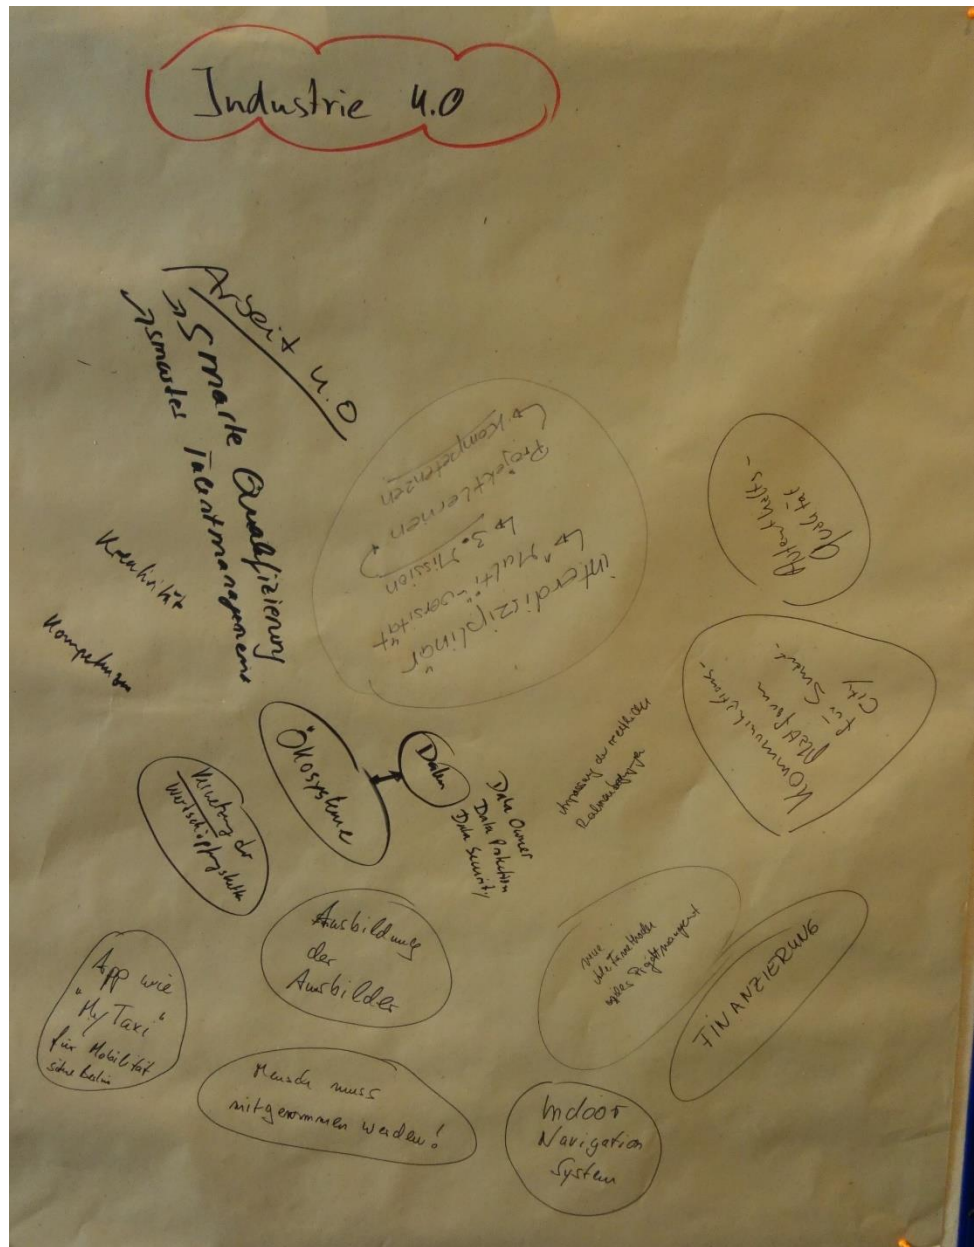 Industrie 4.0
Arbeit 4.0
→ Smarte Qualifizierung
→ smartes Talentmanagement
Kreativität
Kompetenzen
interdisziplinär
↳ "Multi"-versität"
↳ 3. Mission
Projektlernen
↳ Kompetenzen
Aufenthalts-
qualität
Kommunikations-
plattform
für Smart-
City
Ökosysteme
Daten
Data Owner
Data Protection
Data Security
Anpassung der rechtlichen
Vernetzung der
Wertschöpfungskette
Ausbildung
der
Ausbilder
neue
agiles Projektmanagement
FINANZIERUNG
App wie
"My Taxi"
für Mobilität
Mensch muss
mitgenommen werden!
Indoor
Navigation
System